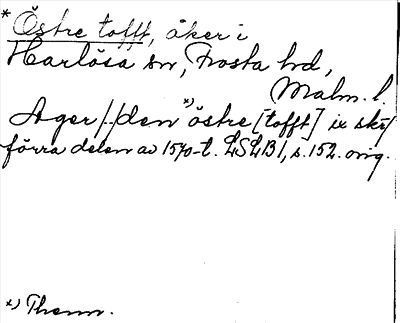 * Östre tofft, åker i
Harlösa sn, Frosta hd,
Malm. l.
Ager /../ den x) östre [tofft] ix skr/
förra delen av 1570-t. LSLB1, s. 152. orig.
x) Thenn.